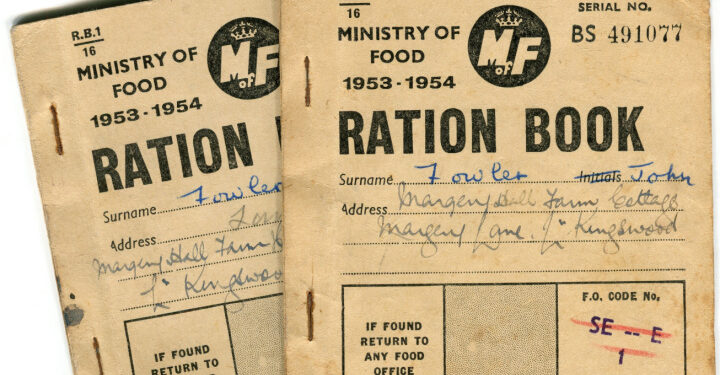 R.B.1
16
MINISTRY OF
FOOD
1953-1954
M F
of
RATION
Surname Fowler
Address
Margery Hall Farm
Kingswood
IF FOUND
RETURN TO
ANY FOOD
16
MINISTRY OF
FOOD
1953-1954
M F
of
SERIAL NO.
BS 491077
RATION BOOK
Surname Fowler Initials John
Address Margery Hall Farm Cottage
Margery Lane Kingswood
IF FOUND
RETURN TO
ANY FOOD
OFFICE
F.O. CODE No.
SE -- E
1